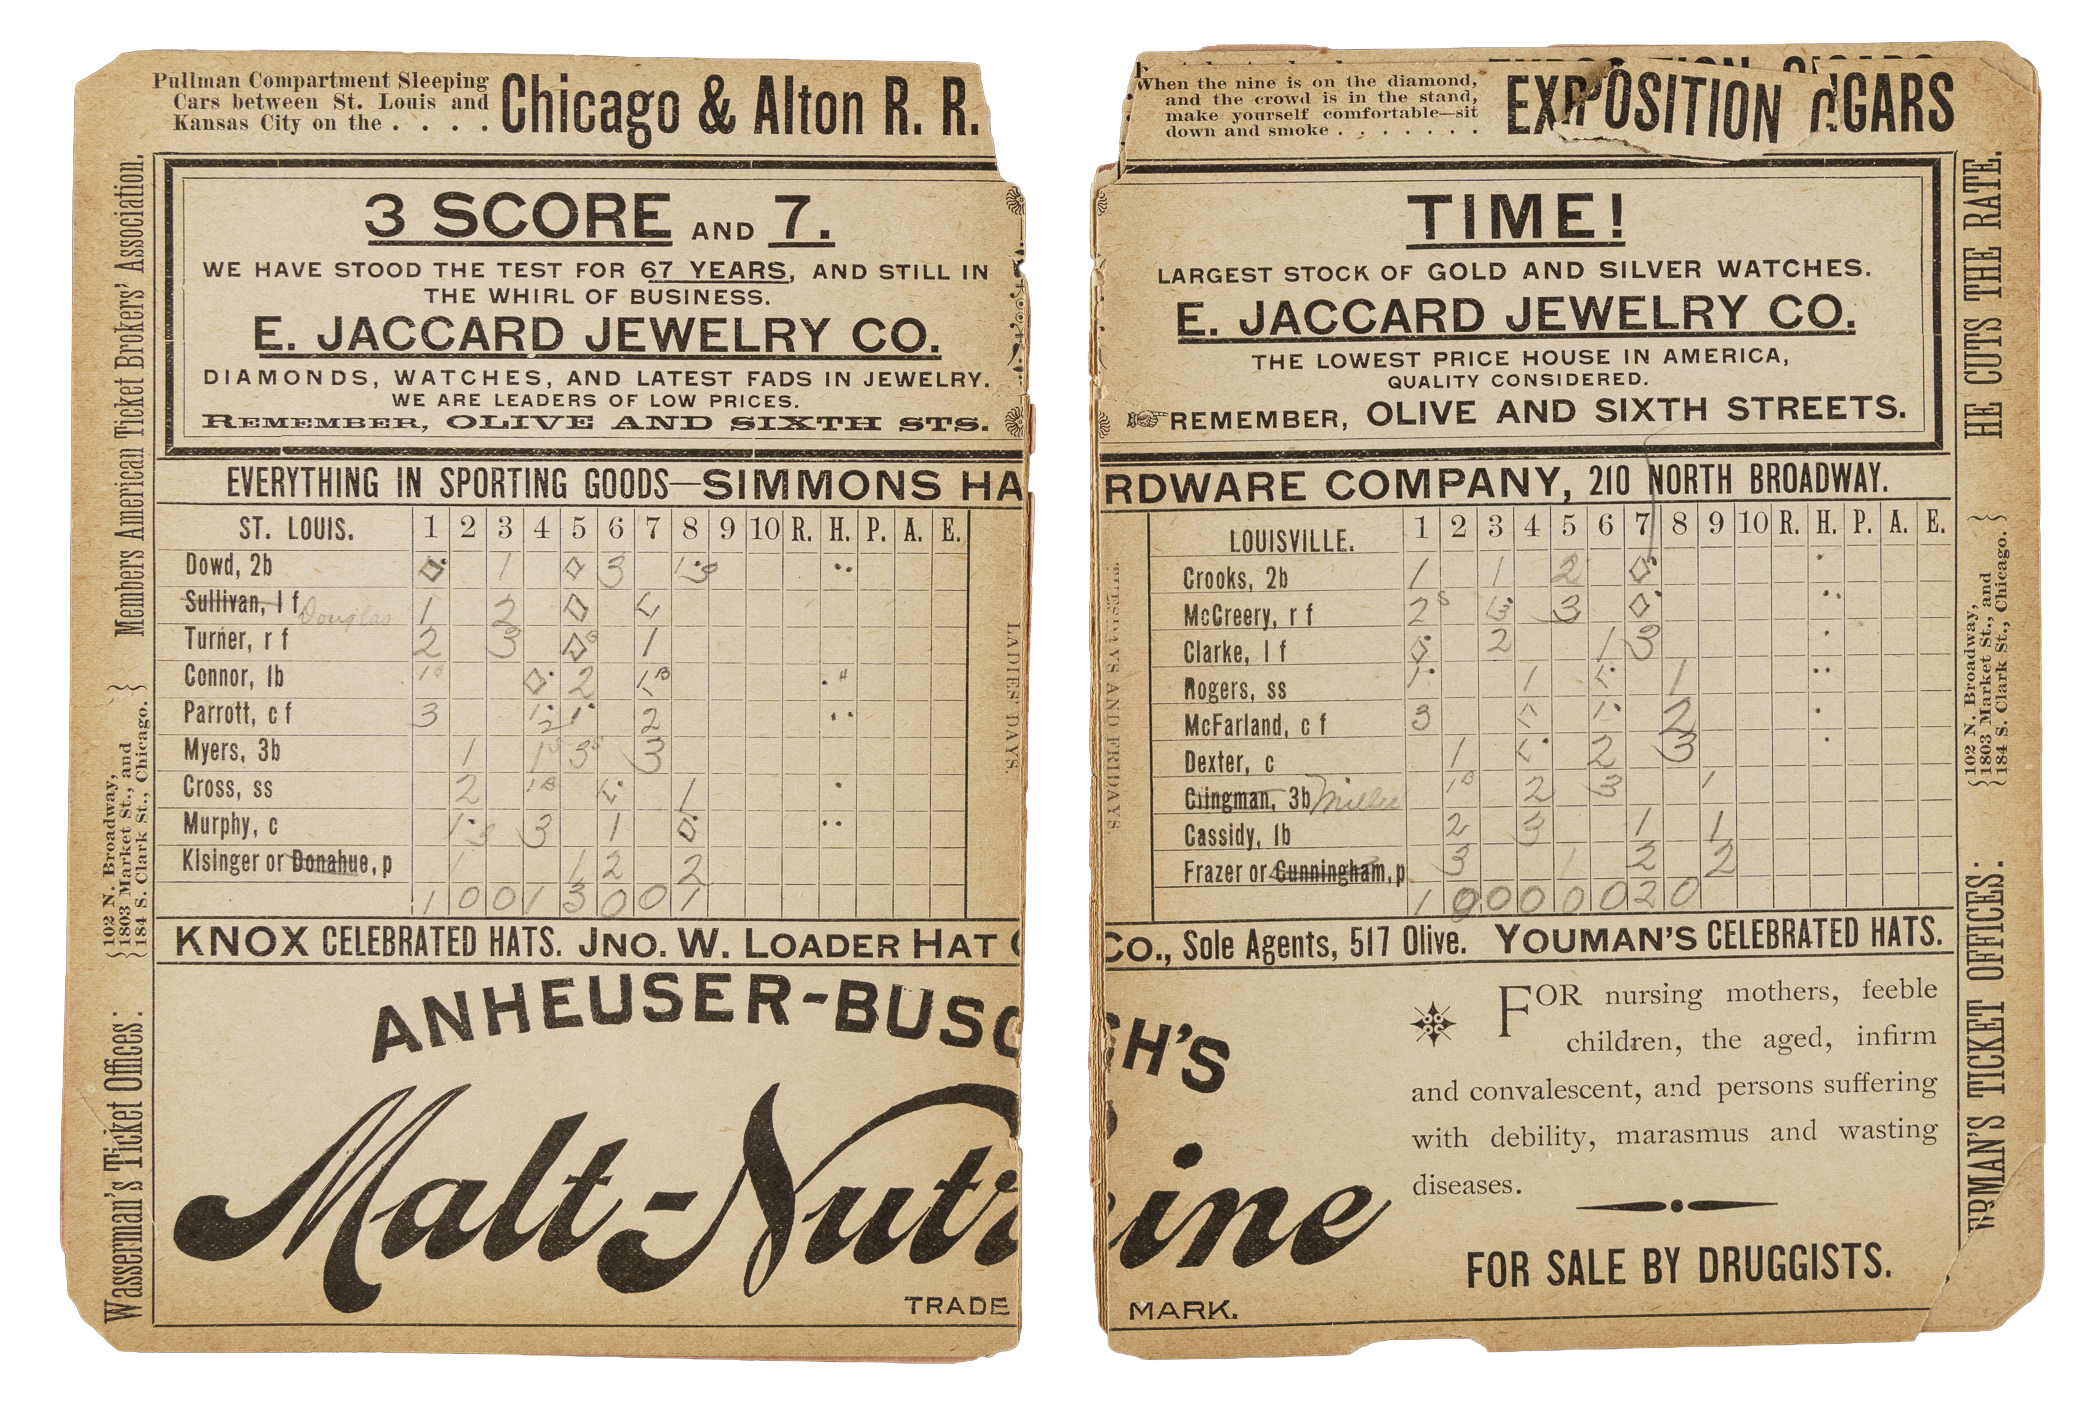 Pullman Compartment Sleeping
Cars between St. Louis and
Kansas City on the . . . .
Chicago & Alton R. R.
3 SCORE AND 7.
WE HAVE STOOD THE TEST FOR 67 YEARS, AND STILL IN
THE WHIRL OF BUSINESS.
E. JACCARD JEWELRY CO.
DIAMONDS, WATCHES, AND LATEST FADS IN JEWELRY.
WE ARE LEADERS OF LOW PRICES.
REMEMBER, OLIVE AND SIXTH STS.
EVERYTHING IN SPORTING GOODS—SIMMONS HA
ST. LOUIS. 1 2 3 4 5 6 7 8 9 10 R. H. P. A. E.
Dowd, 2b
Sullivan, l f Douglas
Turner, r f
Connor, 1b
Parrott, c f
Myers, 3b
Cross, ss
Murphy, c
Kisinger or Donahue, p
1 0 0 1 3 0 0 1
KNOX CELEBRATED HATS. JNO. W. LOADER HAT
ANHEUSER-BUSC
Malt-Nutr
TRADE
Wasserman's Ticket Offices:
102 N. Broadway,
1803 Market St., and
184 S. Clark St., Chicago.
Members American Ticket Brokers' Association.
LADIES' DAYS.
When the nine is on the diamond,
and the crowd is in the stand,
make yourself comfortable—sit
down and smoke . . . . . . .
EXPOSITION CIGARS
TIME!
LARGEST STOCK OF GOLD AND SILVER WATCHES.
E. JACCARD JEWELRY CO.
THE LOWEST PRICE HOUSE IN AMERICA,
QUALITY CONSIDERED.
REMEMBER, OLIVE AND SIXTH STREETS.
RDWARE COMPANY, 210 NORTH BROADWAY.
LOUISVILLE. 1 2 3 4 5 6 7 8 9 10 R. H. P. A. E.
Crooks, 2b
McCreery, r f
Clarke, l f
Rogers, ss
McFarland, c f
Dexter, c
Clingman, 3b Miller
Cassidy, 1b
Frazer or Cunningham, p
1 0 0 0 0 0 2 0
CO., Sole Agents, 517 Olive. YOUMAN'S CELEBRATED HATS.
H'S
ine
MARK.
FOR nursing mothers, feeble
children, the aged, infirm
and convalescent, and persons suffering
with debility, marasmus and wasting
diseases.
FOR SALE BY DRUGGISTS.
TUESDAYS AND FRIDAYS
HE CUTS THE RATE.
102 N. Broadway,
1803 Market St., and
184 S. Clark St., Chicago.
ERMAN'S TICKET OFFICES: